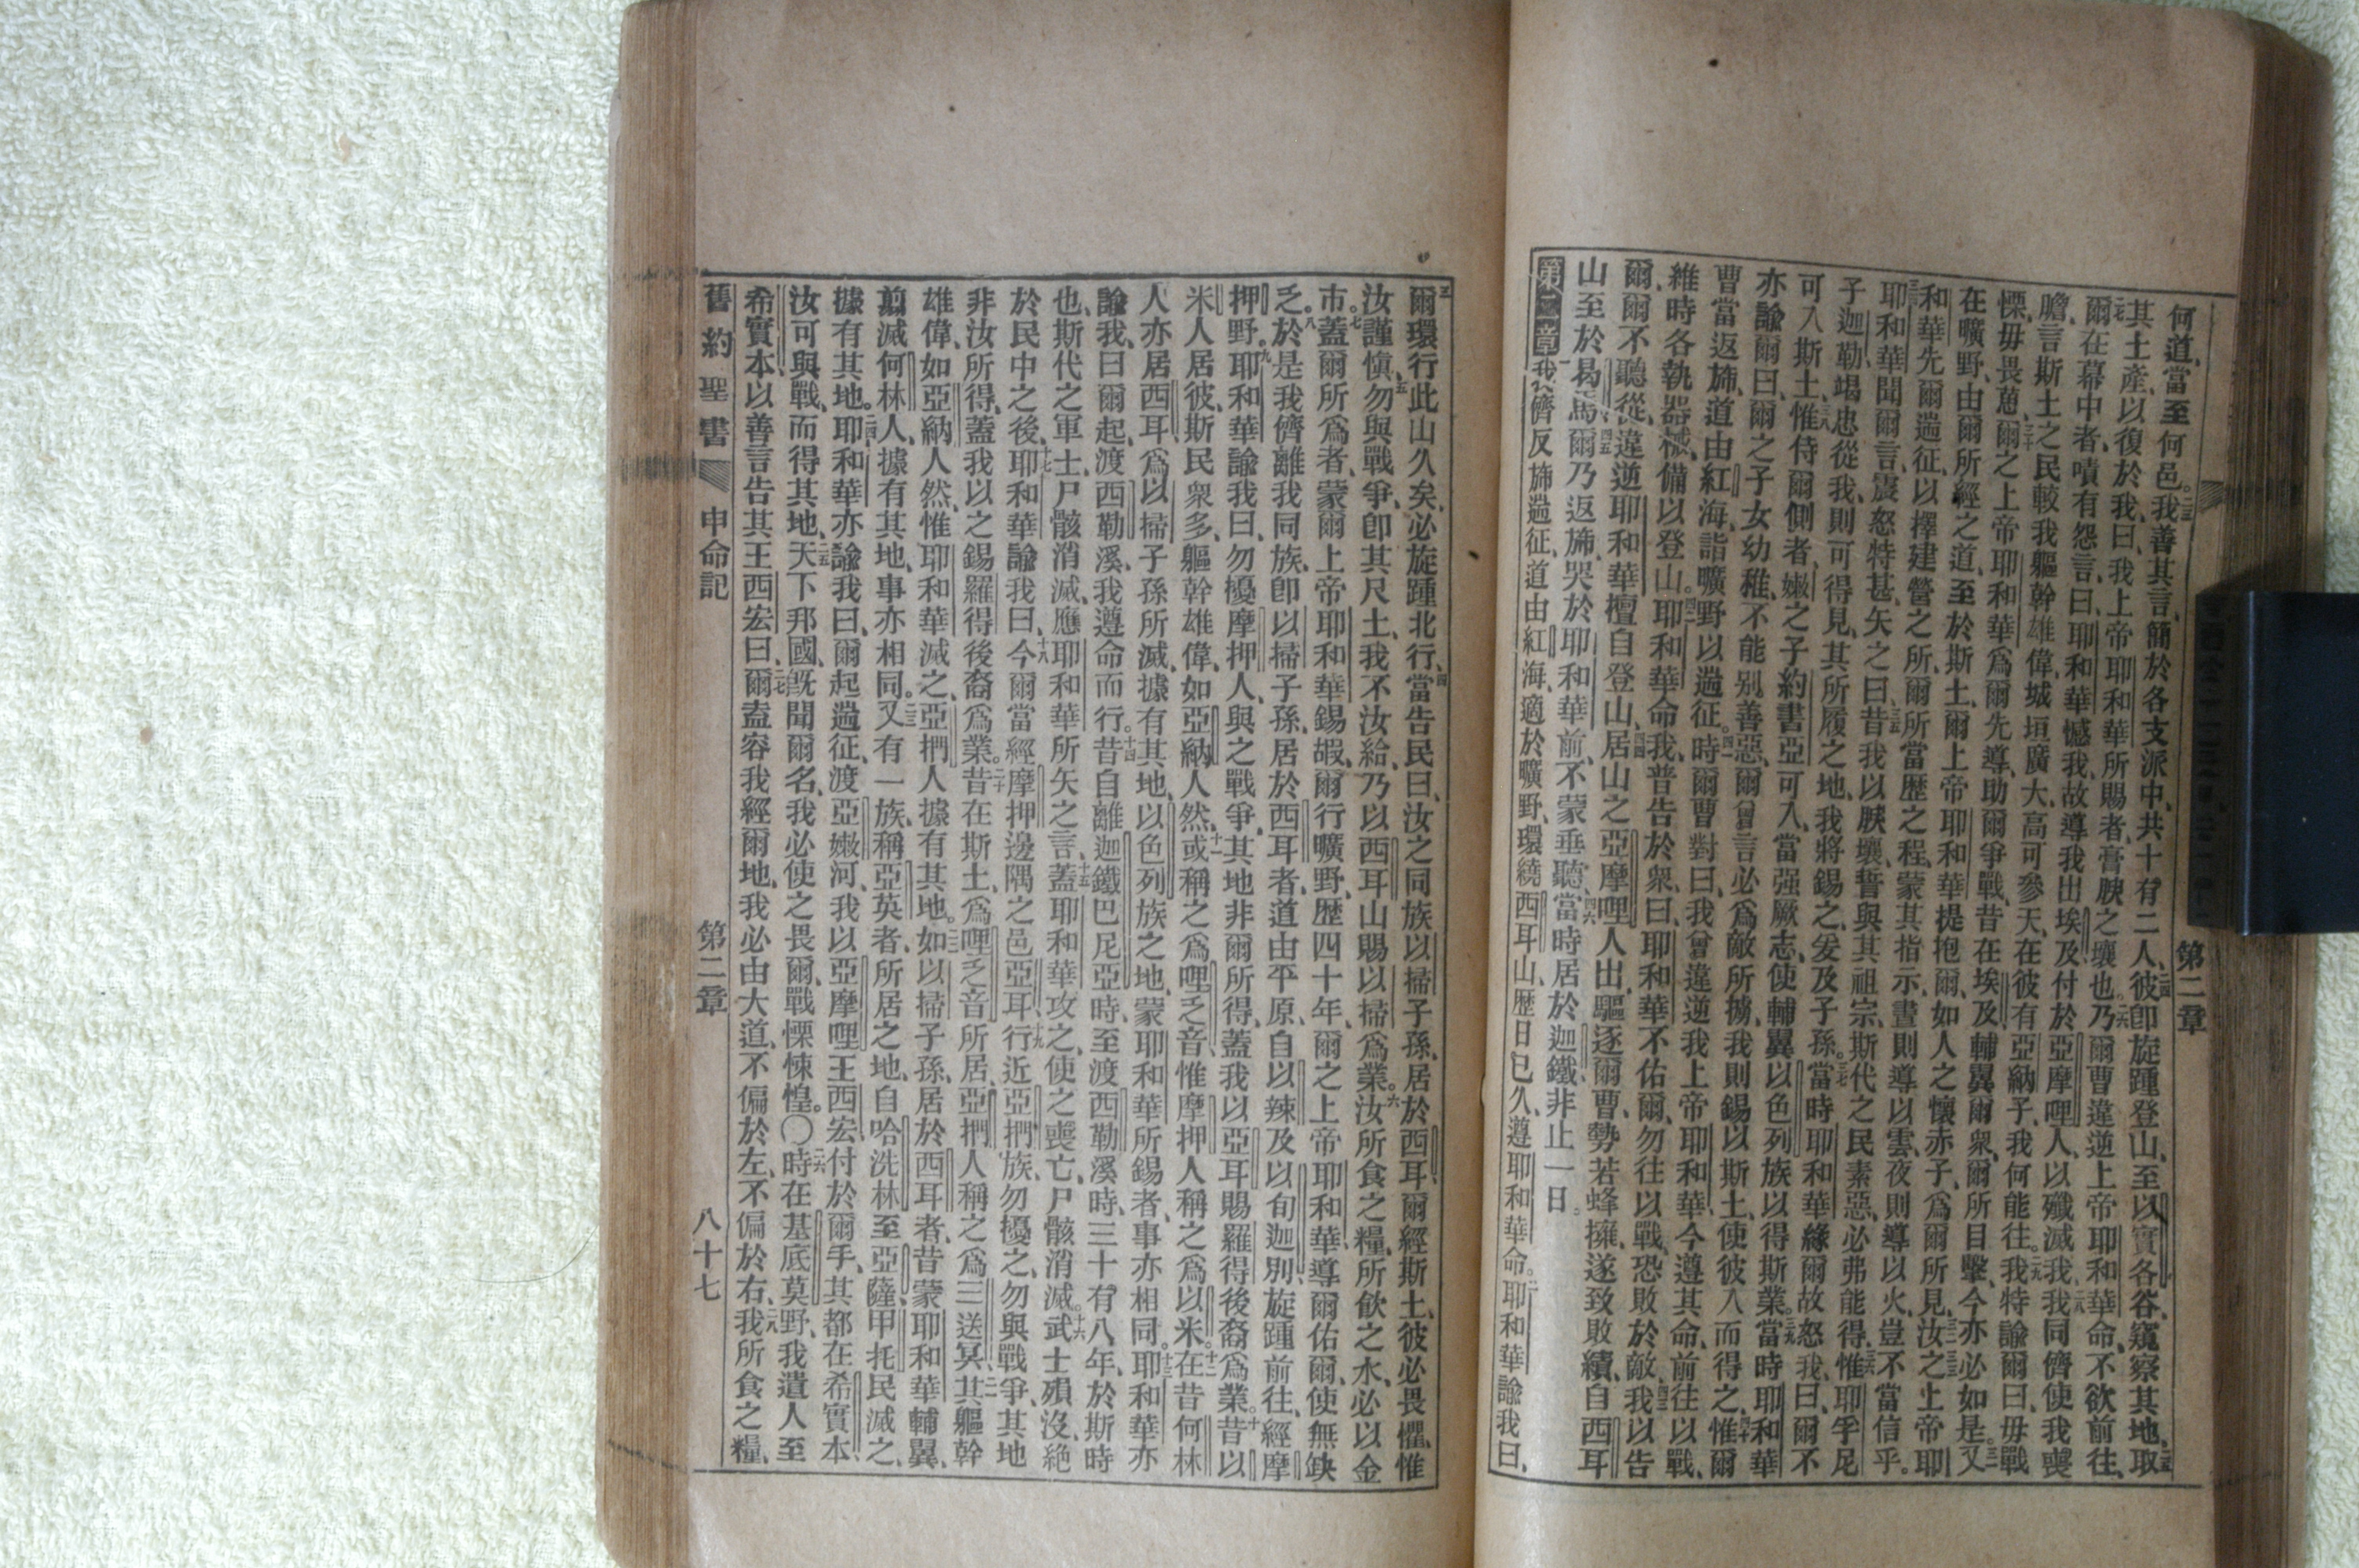 第二章
何道、當至何邑。二三我善其言、簡於各支派中、共十有二人、二四彼卽旋踵登山、至以實各谷、窺察其地、二五取
其土產、以復於我、曰、我上帝耶和華所賜者、膏腴之壤也。二六乃爾曹違逆上帝耶和華命、不欲前往、
二七爾在幕中者、嘖有怨言、曰、耶和華憾我、故導我出埃及、付於亞摩哩人、以殲滅我、二八我同儕使我喪
膽、言斯土之民、較我軀幹雄偉、城垣廣大、高可參天、在彼有亞納子、我何能往。二九我特諭爾曰、毋戰
慄、毋畏葸、三十爾之上帝耶和華、爲爾先導、助爾爭戰、昔在埃及、輔翼爾衆、爾所目擊、今亦必如是。三一又
在曠野、由爾所經之道、至於斯土、爾上帝耶和華提抱爾、如人之懷赤子、爲爾所見、三二汝之上帝耶
和華、三三先爾遄征、以擇建營之所、爾所當歷之程、蒙其指示、晝則導以雲、夜則導以火、豈不當信乎。
三四耶和華聞爾言、震怒特甚、矢之曰、三五昔我以腴壤、誓與其祖宗、斯代之民素惡、必弗能得、三六惟耶孚尼
子迦勒、竭忠從我、則可得見、其所履之地、我將錫之、爰及子孫。三七當時耶和華緣爾故怒我、曰、爾不
可入斯土、三八惟侍爾側者、嫩之子約書亞可入、當强厥志、使輔翼以色列族、以得斯業。三九當時耶和華
亦諭爾曰、爾之子女幼稚、不能別善惡、爾曾言必爲敵所擄、我則錫以斯土、使彼入而得之、四十惟爾
曹當返斾、道由紅海、詣曠野以遄征。四一時爾曹對曰、我曾違逆我上帝耶和華、今遵其命、前往以戰、
維時各執器械、備以登山。四二耶和華命我、普告於衆、曰、耶和華不佑爾、勿往以戰、恐敗於敵、四三我以告
爾、爾不聽從、違逆耶和華、擅自登山、四四居山之亞摩哩人出、驅逐爾曹、勢若蜂擁、遂致敗績、自西耳
山至於曷馬、四五爾乃返斾、哭於耶和華前、不蒙垂聽、四六當時居於迦鐵、非止一日。
第二章 一我儕反斾遄征、道由紅海、適於曠野、環繞西耳山、歷日已久、遵耶和華命。二耶和華諭我曰、
三爾環行此山久矣、必旋踵北行、四當告民曰、汝之同族以掃子孫、居於西耳、爾經斯土、彼必畏懼、惟
汝謹愼、五勿與戰爭、卽其尺土、我不汝給、乃以西耳山賜以掃爲業。六汝所食之糧、所飮之水、必以金
市。七蓋爾所爲者、蒙爾上帝耶和華錫嘏、爾行曠野、歷四十年、爾之上帝耶和華、導爾佑爾、使無缺
乏。八於是我儕離我同族、卽以掃子孫、居於西耳者、道由平原、自以辣及以旬迦別、旋踵前往、經摩
押野。九耶和華諭我曰、勿擾摩押人、與之戰爭、其地非爾所得、蓋我以亞耳賜羅得後裔爲業。十昔以
米人居彼、斯民衆多、軀幹雄偉、如亞納人然、十一或稱之爲哩乏音、惟摩押人稱之爲以米。十二在昔何林
人亦居西耳、爲以掃子孫所滅、據有其地、以色列族之地、蒙耶和華所錫者、事亦相同。十三耶和華亦
諭我曰、爾起、渡西勒溪、我遵命而行。十四昔自離迦鐵巴尼亞時、至渡西勒溪時、三十有八年、於斯時
也、斯代之軍士、尸骸消滅、應耶和華所矢之言、十五蓋耶和華攻之、使之喪亡、尸骸消滅。十六武士殞沒、絕
於民中之後、十七耶和華諭我曰、十八今爾當經摩押邊隅之邑亞耳、十九行近亞捫族、勿擾之、勿與戰爭、其地
非汝所得、蓋我以之錫羅得後裔爲業。二十昔在斯土、爲哩乏音所居、亞捫人稱之爲三送冥、二一其軀幹
雄偉、如亞納人然、惟耶和華滅之、亞捫人據有其地。二二如以掃子孫、居於西耳者、昔蒙耶和華輔翼、
翦滅何林人、據有其地、事亦相同。二三又有一族、稱亞英者、所居之地、自哈洗林至亞薩、甲托民滅之、
據有其地。二四耶和華亦諭我曰、爾起遄征、渡亞嫩河、我以亞摩哩王西宏、付於爾手、其都在希實本、
汝可與戰、而得其地、二五天下邦國、旣聞爾名、我必使之畏爾、戰慄悚惶。〇二六時在基底莫野、我遣人至
希實本、以善言告其王西宏曰、二七爾盍容我經爾地、我必由大道、不偏於左、不偏於右、二八我所食之糧、
舊約聖書 申命記 第二章 八十七